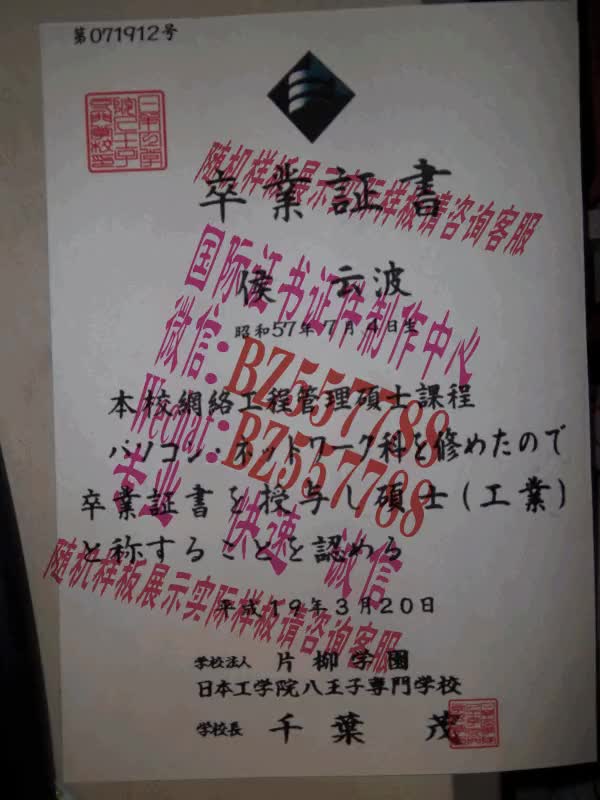 第071912号
卒業証書
侯 云波
昭和57年7月4日生
本校網絡工程管理碩士課程
パソコン・ネットワーク科を修めたので
卒業証書を授与し碩士(工業)
と称することを認める
平成19年3月20日
学校法人 片柳学園
日本工学院八王子専門学校
学校長 千葉 茂
随机样板展示实际样板请咨询客服
国际证书证件制作中心
微信:BZ557788
Wechat:BZ557788
专业 快速 诚信
随机样板展示实际样板请咨询客服